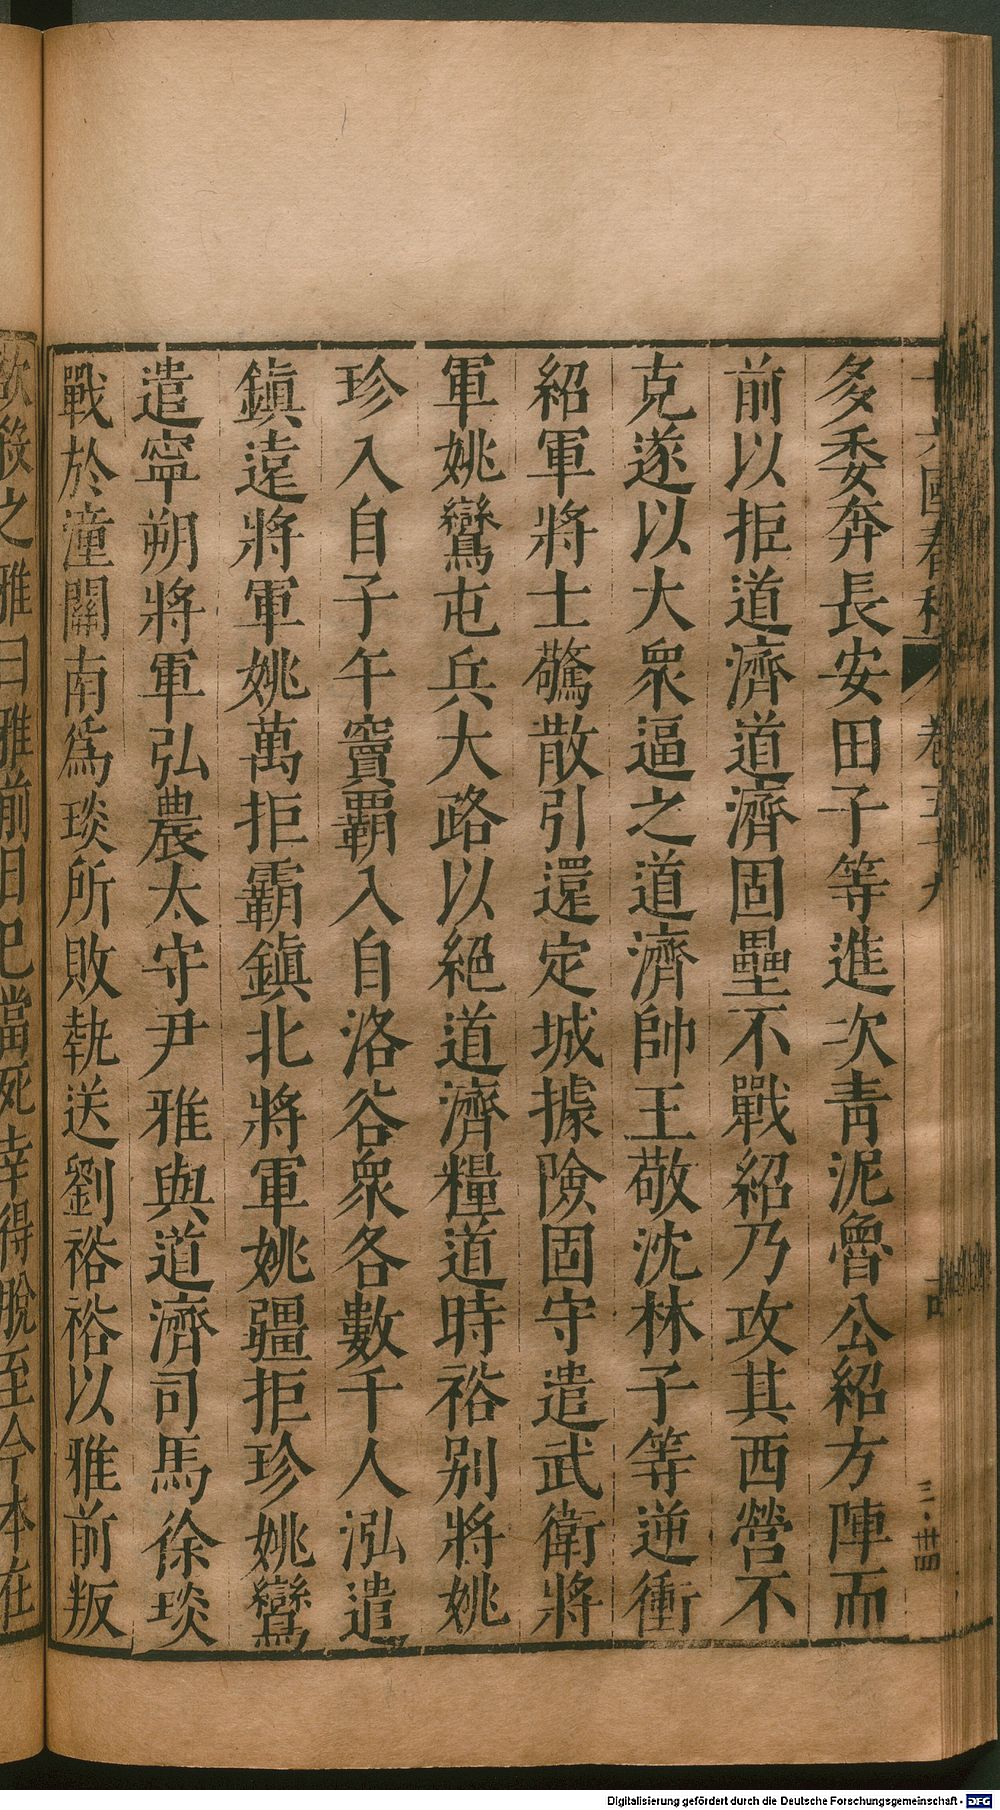 十六國春秋 卷五十九
多委奔長安田子等進次青泥魯公紹方陣而
前以拒道濟道濟固壘不戰紹乃攻其西營不
克遂以大衆逼之道濟帥王敬沈林子等逆衝
紹軍將士驚散引還定城據險固守遣武衛將
軍姚鸞屯兵大路以絕道濟糧道時裕别將姚
珍入自子午竇霸入自洛谷衆各數千人泓遣
鎭遠將軍姚萬拒霸鎭北將軍姚疆拒珍姚鸞
遣寧朔將軍弘農太守尹雅與道濟司馬徐琰
戰於潼關南爲琰所敗執送劉裕裕以雅前叛
欲殺之雅曰雅前日已當死幸得脫至今本在
Digitalisierung gefördert durch die Deutsche Forschungsgemeinschaft - DFG